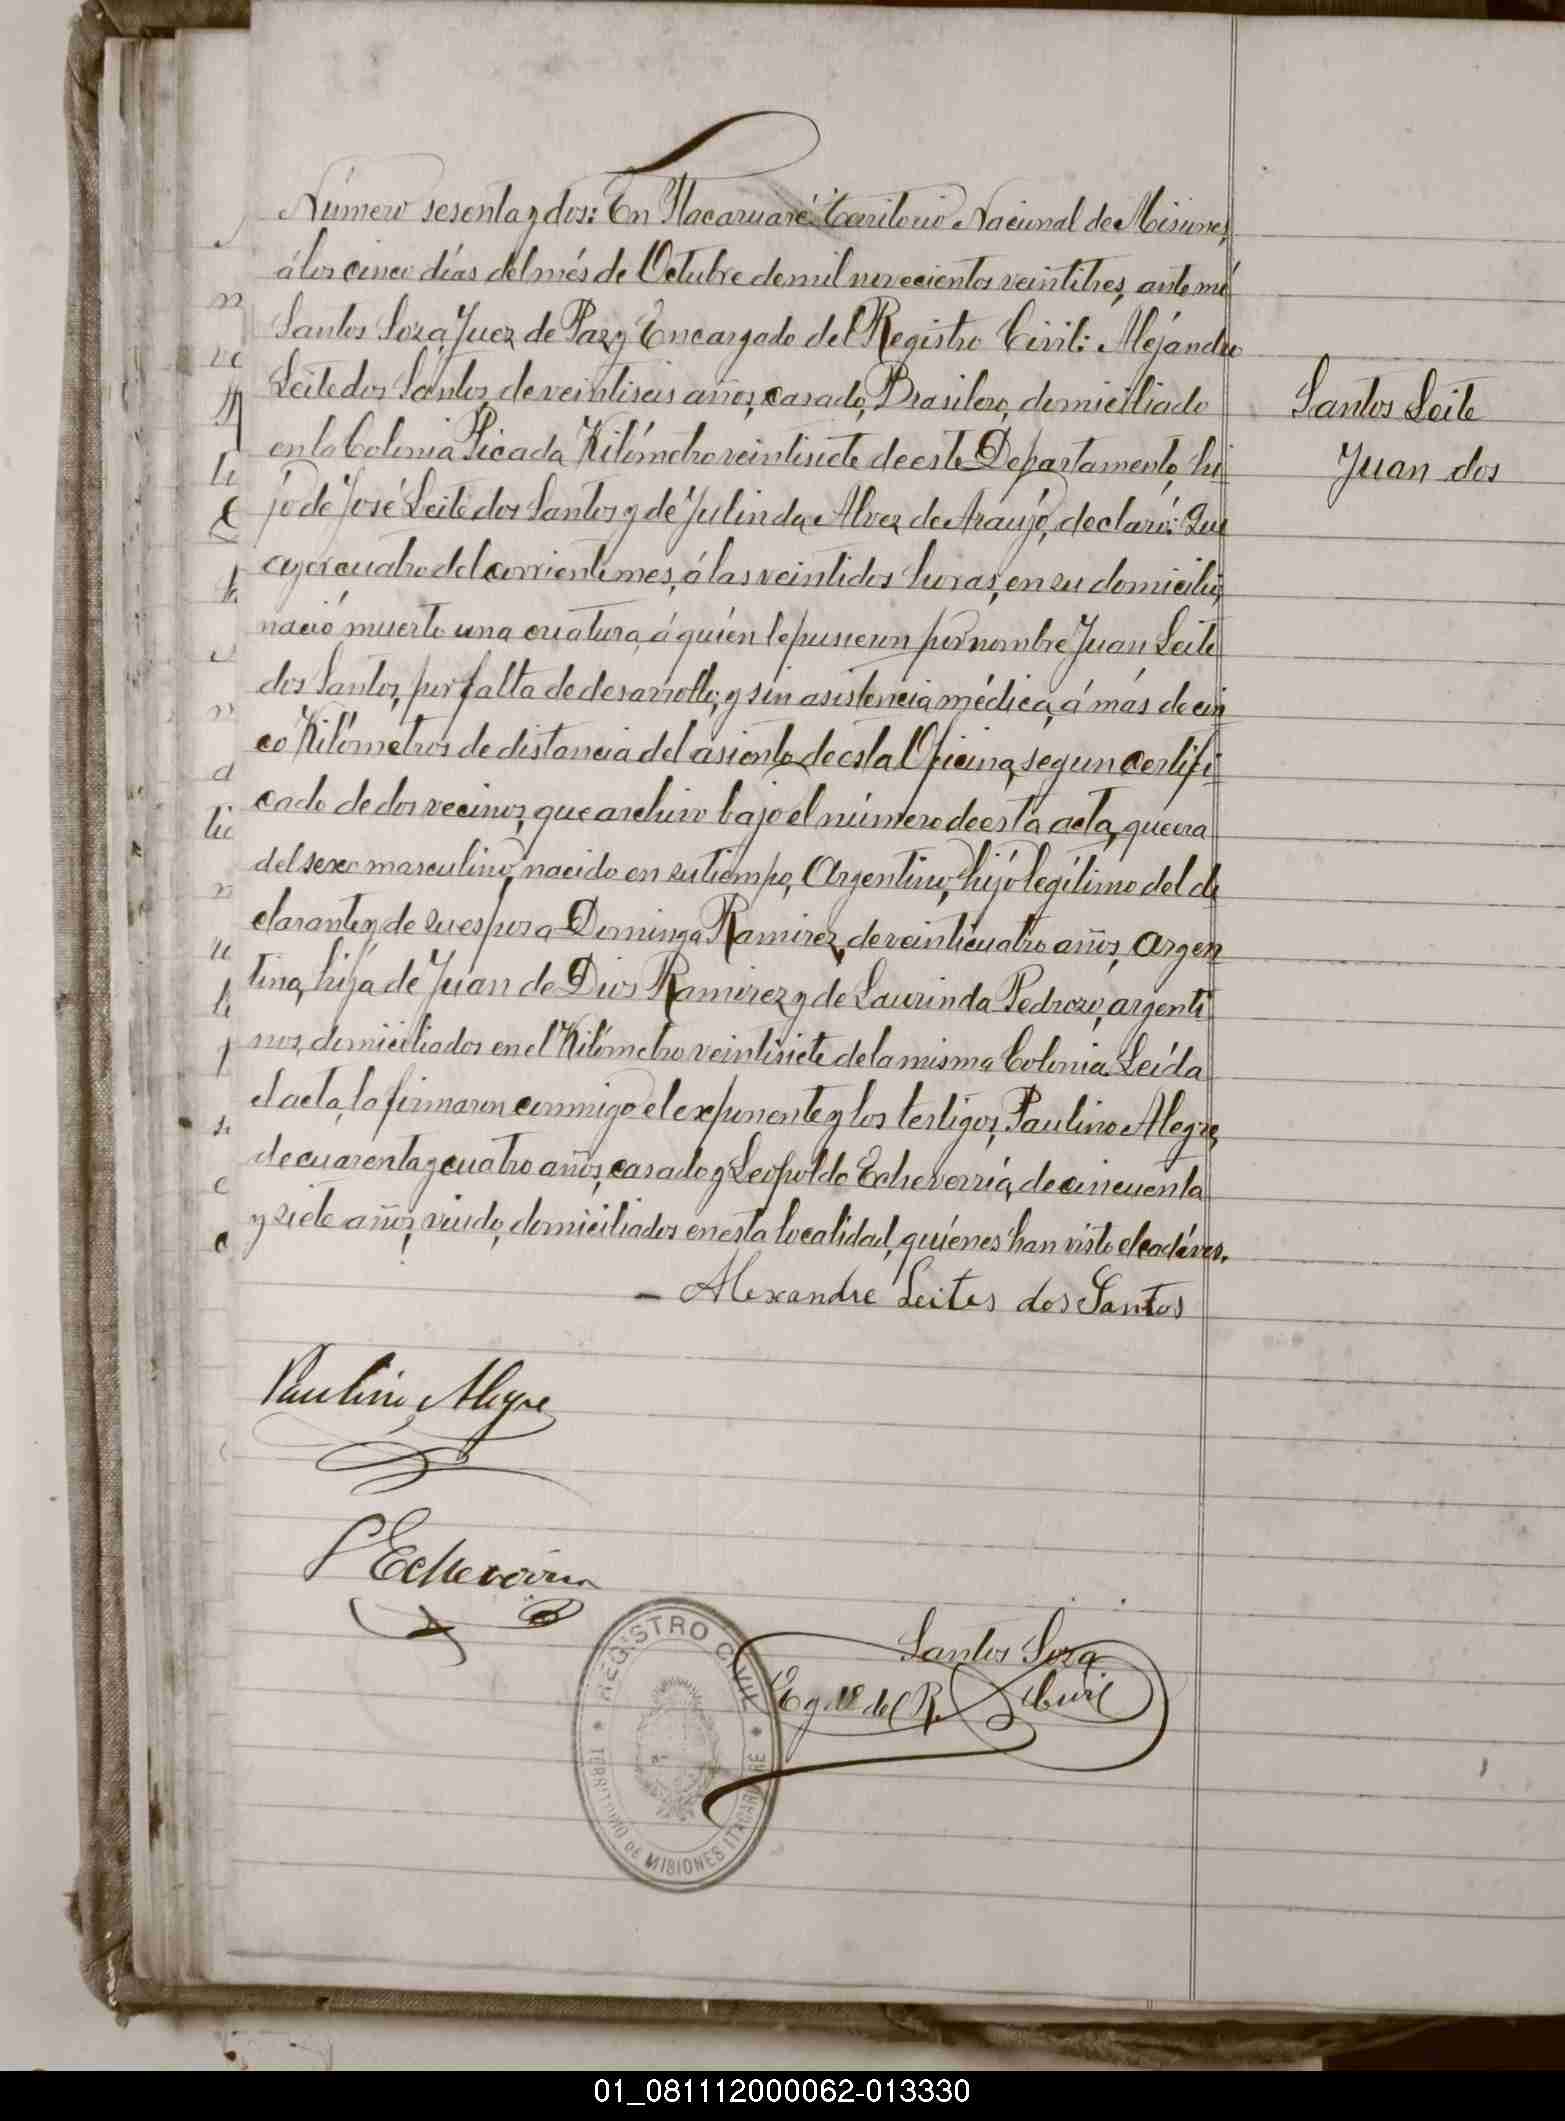 Número sesenta y dos: En Itacaruaré Territorio Nacional de Misiones,
á los cinco días del més de Octubre de mil novecientos veintitres, ante mí
Santos Soza, Juez de Paz y Encargado del Registro Civil: Alejándro
Leite dos Santos, de veintiseis años, casado, Brasilero, domiciliado
en la Colonia Picada Kilómetro veintisiete de este Departamento, hi-
jo de José Leite dos Santos y de Julinda Alvez de Araujo, declaró: Que
ayer cuatro del corriente mes, á las veintidos horas, en su domicilio,
nació muerto una criatura, á quién le pusieron por nombre Juan Leite
dos Santos, por falta de desarrollo, y sin asistencia médica, á más de cin
co Kilómetros de distancia del asiento de esta Oficina, segun certifi-
cado de dos vecinos, que archivo bajo el número de esta acta, que era
del sexo masculino, nacido en su tiempo, Argentino, hijo legítimo del de
clarante y de su esposa Dominga Ramirez, de veinticuatro años, argen
tina, hija de Juan de Dios Ramirez y de Laurinda Pedrozo, argenti
nos, domiciliados en el Kilómetro veintisiete de la misma Colonia. Leída
el acta, la firmaron conmigo el exponente y los testigos, Paulino Alegre,
de cuarenta y cuatro años, casado y Leopoldo Echeverría, de cincuenta
y siete años, viudo, domiciliados en esta localidad, quiénes han visto el cadáver.
Santos Leite
Juan dos
– Alexandre Leites dos Santos
Paulino Alegre
L Echeverria
Santos Soza
Eg do del R. Civil
REGISTRO CIVIL
TERRITORIO DE MISIONES ITACARUARE
01_081112000062-013330